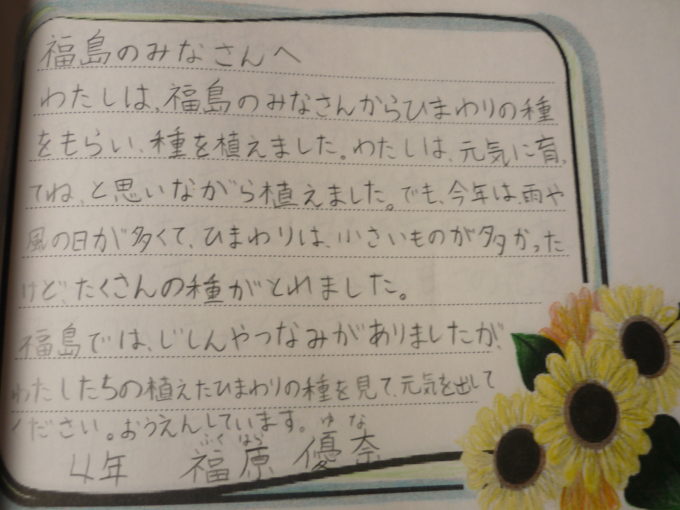 福島のみなさんへ
わたしは、福島のみなさんからひまわりの種
をもらい、種を植えました。わたしは、元気に育っ
てね、と思いながら植えました。でも、今年は、雨や
風の日が多くて、ひまわりは、小さいものが多かった
けど、たくさんの種がとれました。
福島では、じしんやつなみがありましたが、
わたしたちの植えたひまわりの種を見て、元気を出して
ください。おうえんしています。
ふく はら ゆ な
4年 福原 優奈